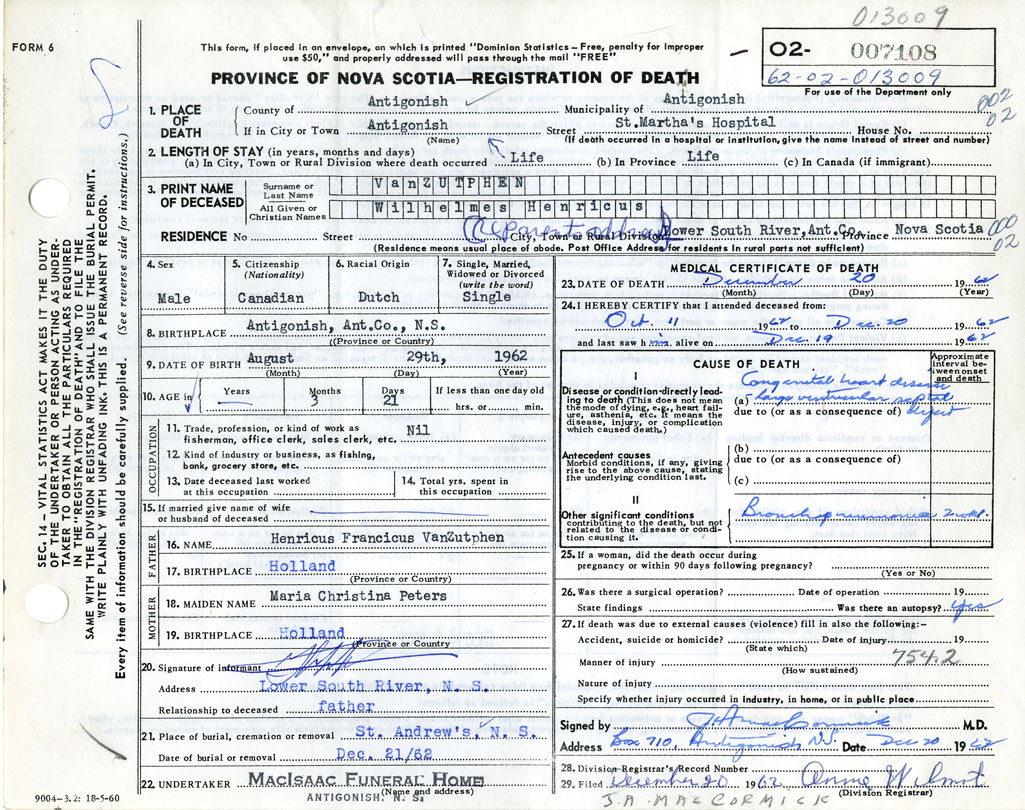 013009
FORM 6
This form, if placed in an envelope, on which is printed "Dominion Statistics – Free, penalty for improper
use $50," and properly addressed will pass through the mail "FREE"
PROVINCE OF NOVA SCOTIA—REGISTRATION OF DEATH
02- 007108
62-02-013009
For use of the Department only
002
02
1. PLACE OF DEATH
County of Antigonish Municipality of Antigonish
If in City or Town Antigonish Street St.Martha's Hospital House No.
(Name) (If death occurred in a hospital or institution, give the name instead of street and number)
2. LENGTH OF STAY (in years, months and days)
(a) In City, Town or Rural Division where death occurred Life (b) In Province Life (c) In Canada (if immigrant)
3. PRINT NAME OF DECEASED
Surname or Last Name VanZUTPHEN
All Given or Christian Names Wilhelmes Henricus
RESIDENCE No Street (parents address) City, Town or Rural Division Lower South River,Ant.Co. Province Nova Scotia
(Residence means usual place of abode. Post Office Address for residents in rural parts not sufficient)
000
02
4. Sex Male
5. Citizenship (Nationality) Canadian
6. Racial Origin Dutch
7. Single, Married, Widowed or Divorced (write the word) Single
8. BIRTHPLACE Antigonish, Ant.Co., N.S.
(Province or Country)
9. DATE OF BIRTH August 29th, 1962
(Month) (Day) (Year)
10. AGE in Years Months 3 Days 21 If less than one day old hrs. or min.
OCCUPATION
11. Trade, profession, or kind of work as
fisherman, office clerk, sales clerk, etc. Nil
12. Kind of industry or business, as fishing,
bank, grocery store, etc.
13. Date deceased last worked
at this occupation
14. Total yrs. spent in
this occupation
15. If married give name of wife
or husband of deceased
FATHER
16. NAME Henricus Francicus VanZutphen
17. BIRTHPLACE Holland
(Province or Country)
MOTHER
18. MAIDEN NAME Maria Christina Peters
19. BIRTHPLACE Holland
(Province or Country)
20. Signature of informant
Address Lower South River, N. S.
Relationship to deceased father
21. Place of burial, cremation or removal St. Andrew's, N. S.
Date of burial or removal Dec. 21/62
22. UNDERTAKER MacIsaac Funeral Home
(Name and address)
ANTIGONISH, N. S.
9004-3.2: 18-5-60
MEDICAL CERTIFICATE OF DEATH
23. DATE OF DEATH December 20 1962
(Month) (Day) (Year)
24. I HEREBY CERTIFY that I attended deceased from:
Oct. 11 1962 to Dec. 20 1962
and last saw him alive on Dec. 19 1962
CAUSE OF DEATH
Approximate interval between onset and death
I
Disease or condition directly leading to death (This does not mean
the mode of dying, e.g., heart failure, asthenia, etc. It means the
disease, injury, or complication
which caused death.)
Congenital heart disease
(a) - large ventricular septal
due to (or as a consequence of) defect
Antecedent causes
Morbid conditions, if any, giving
rise to the above cause, stating
the underlying condition last.
(b)
due to (or as a consequence of)
(c)
II
Other significant conditions
contributing to the death, but not
related to the disease or condition causing it.
Bronchopneumonia 2 wks.
25. If a woman, did the death occur during
pregnancy or within 90 days following pregnancy?
(Yes or No)
26. Was there a surgical operation? Date of operation 19
State findings Was there an autopsy? Yes
27. If death was due to external causes (violence) fill in also the following:-
Accident, suicide or homicide? Date of injury 19
(State which)
754.2
Manner of injury
(How sustained)
Nature of injury
Specify whether injury occurred in industry, in home, or in public place
Signed by J.A. MacCormick M.D.
Address Box 710, Antigonish N.S. Date Dec 20 1962
28. Division Registrar's Record Number
29. Filed December 20 1962
(Division Registrar)
J.A. MACCORMICK
SEC. 14 – VITAL STATISTICS ACT MAKES IT THE DUTY
OF THE UNDERTAKER OR PERSON ACTING AS UNDERTAKER TO OBTAIN ALL THE PARTICULARS REQUIRED
IN THE "REGISTRATION OF DEATH" AND TO FILE THE
SAME WITH THE DIVISION REGISTRAR WHO SHALL ISSUE THE BURIAL PERMIT.
WRITE PLAINLY WITH UNFADING INK. THIS IS A PERMANENT RECORD.
Every item of information should be carefully supplied. (See reverse side for instructions.)